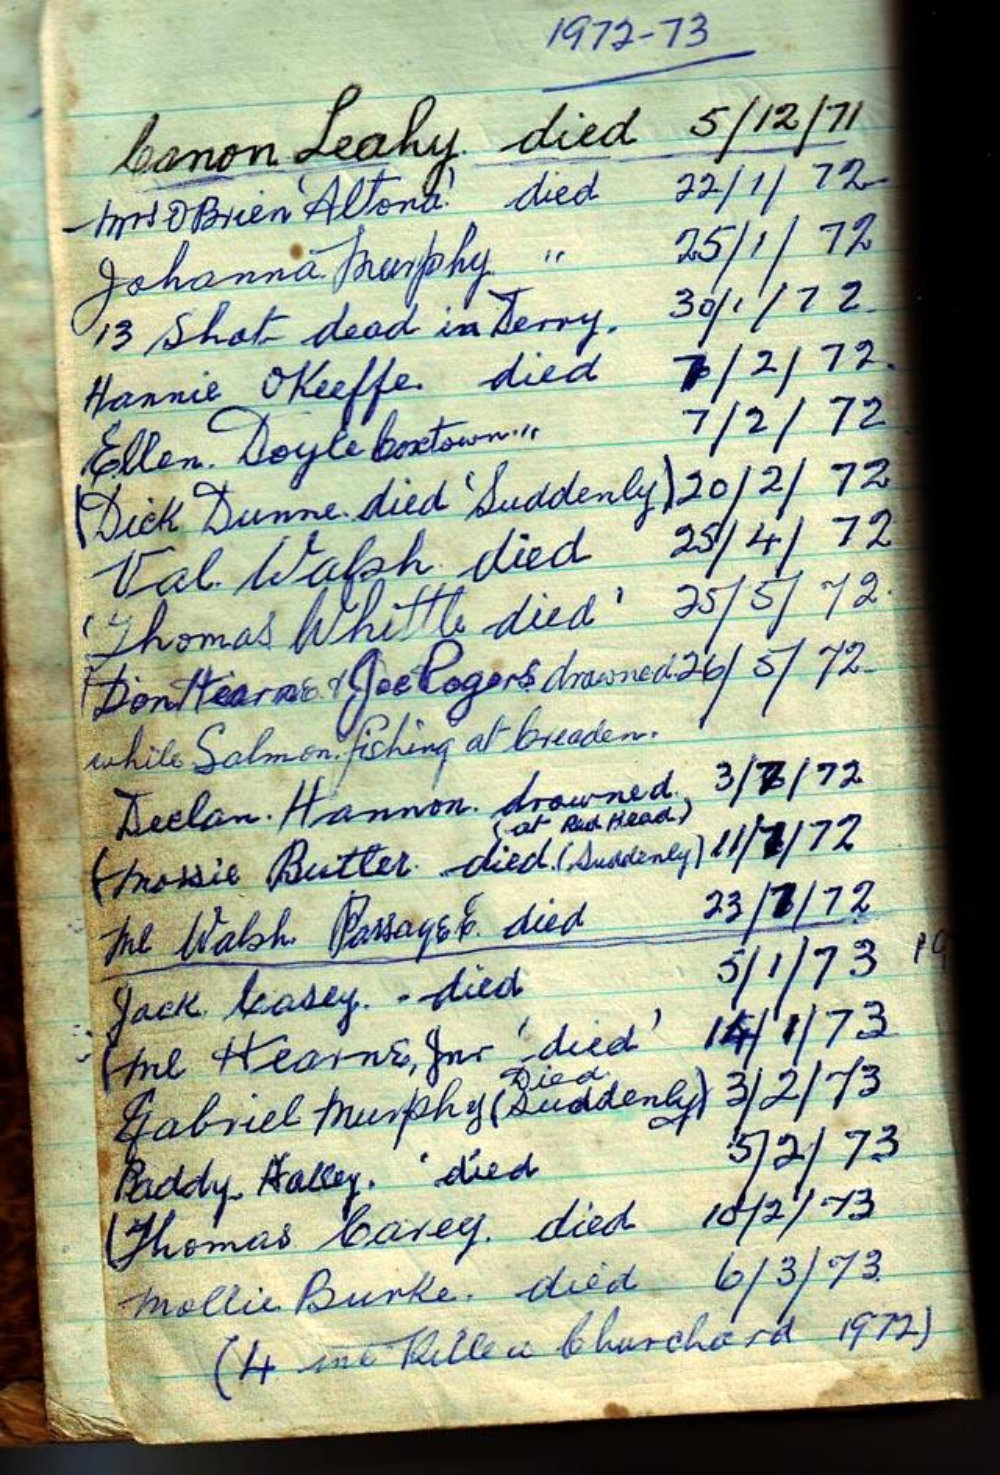 1972-73
Canon Leahy. died 5/12/71
Mrs O'Brien 'Altona' died 22/1/72
Johanna Murphy " 25/1/72
13 Shot dead in Derry. 30/1/72.
Hannie OKeeffe. died 7/2/72.
Ellen. Doyle Coxtown " 7/2/72
(Dick Dunne. died 'Suddenly) 20/2/72
Val. Walsh. died 25/4/72
'Thomas Whittle died' 25/5/72.
(Don Hearne & Joe Rogers drowned 26/5/72
while Salmon. fishing at Creaden.
Declan. Hannon. drowned. 3/7/72
(at Red Head)
(Mossie Butler. died. (Suddenly) 11/7/72
Ml Walsh. Passage E. died 23/7/72
Jack. Casey. - died 5/1/73
(Ml Hearne, Jnr 'died' /1/73
Died
Gabriel Murphy (Suddenly) 3/2/73
Paddy. died 5/2/73
(Thomas Carey. died /2/73
Mollie Burke. died 6/3/73
(4 in Killea Churchard 1972)